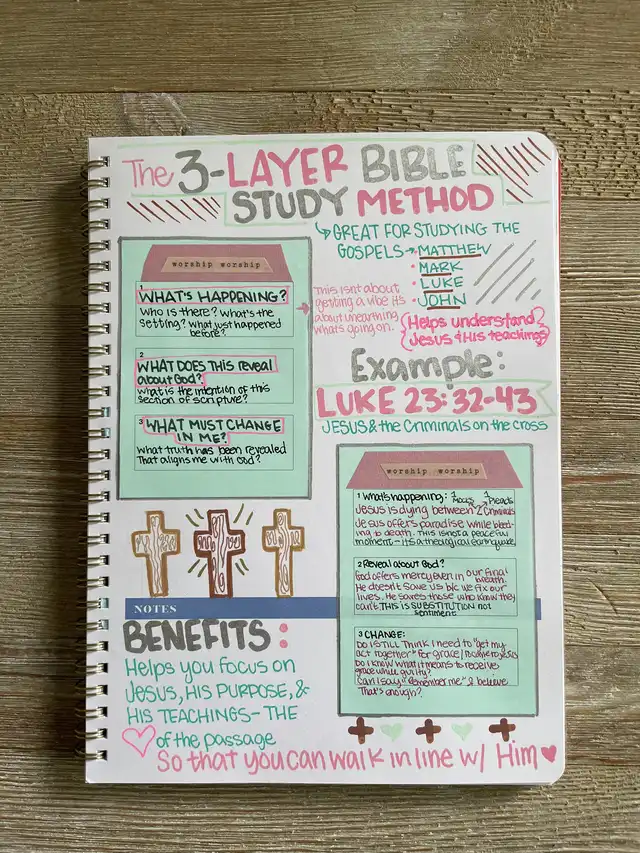 The 3-LAYER BIBLE
STUDY METHOD
GREAT FOR STUDYING THE
GOSPELS → MATTHEW
• MARK
• LUKE
• JOHN
worship worship
1
WHAT'S HAPPENING?
WHO IS THERE? WHAT'S THE
SETTING? WHAT JUST HAPPENED
BEFORE?
2
WHAT DOES THIS reveal
about God?
What is the intention of this
section of scripture?
3 WHAT MUST CHANGE
IN ME?
What truth has been revealed
That aligns me with God?
This isn't about
getting a vibe its
about unearthing
whats going on.
{Helps understand
Jesus & his teachings}
Example:
LUKE 23:32-43
JESUS & the Criminals on the cross
worship worship
1 What's happening: 1 mocks 1 pleads
Jesus is dying between 2 criminals
Jesus offers paradise while bleed-
ing to death. THIS IS NOT a peaceful
moment - it's a theological earthquake
2 Reveal about God?
God offers mercy even in our final
breath.
He doesn't save us b/c we fix our
lives. He saves those who know they
can't. THIS IS SUBSTITUTION not
sentiment
3 CHANGE:
Do I STILL Think I need to "get my
act together" for grace
Do I know what it means to receive
grace while guilty?
Can I say "Remember me" & believe
That's enough?
NOTES
BENEFITS:
Helps you focus on
JESUS, HIS PURPOSE, &
HIS TEACHINGS - THE
of the passage
So that you can walk in line w/ Him